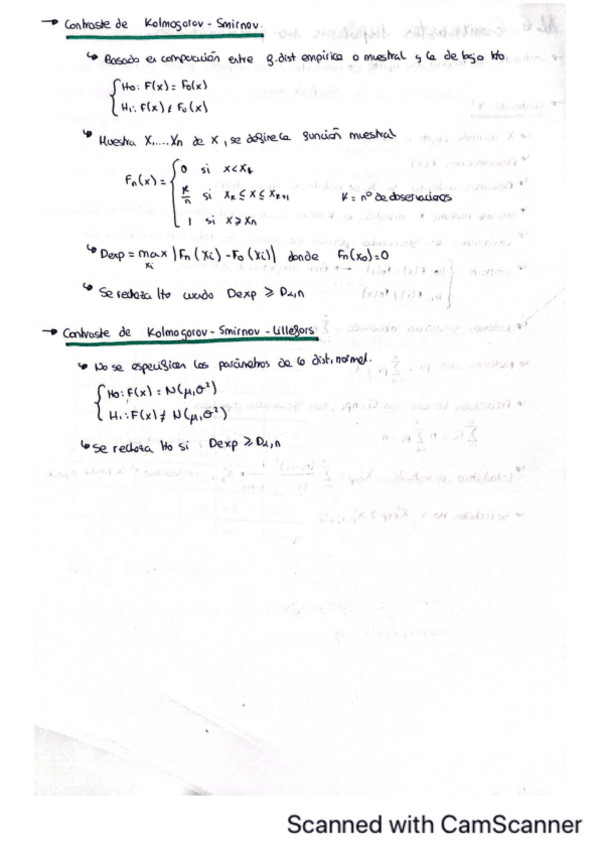 → Contraste de Kolmogorov - Smirnov.
↳ Basado es comparación entre g.dist empírica o muestral y la de bajo Ho.
{ Ho: F(x) = Fo(x)
H1: F(x) ≠ Fo(x)
↳ Muestra X1....Xn de X, se define la función muestral
Fn(x) = { 0 si x<x1
k/n si xk ≤ x ≤ xk+1 k = nº de observaciones
1 si x ≥ xn
↳ Dexp = max |Fn(xi) - Fo(xi)| donde Fn(xo)=0
xi
↳ Se rechaza Ho cuando Dexp ≥ Dα,n
→ Contraste de Kolmogorov - Smirnov - Lillefors
↳ No se especifican los parámetros de la dist. normal.
{ Ho: F(x) = N(μ,σ²)
H1: F(x) ≠ N(μ,σ²)
↳ Se rechaza Ho si Dexp ≥ Dα,n
Scanned with CamScanner